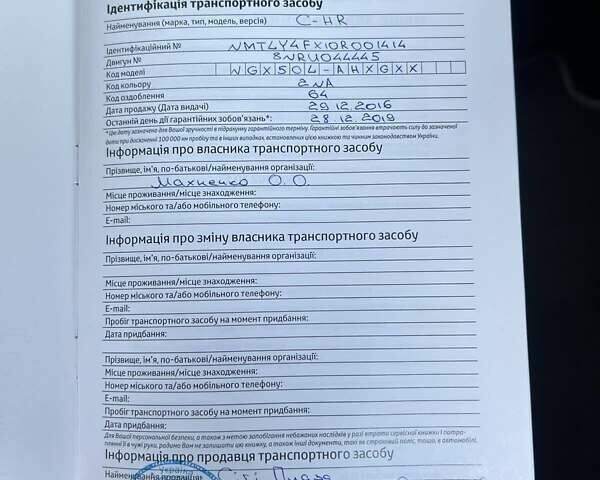 Ідентифікація транспортного засобу
Найменування (марка, тип, модель, версія) C-HR
Ідентифікаційний № NMTLY4FX10R001414
Двигун № 8NRU044445
Код моделі NGX50L-AHXGXX
Код кольору 2NA
Код оздоблення 64
Дата продажу (Дата видачі) 29.12.2016
Останній день дії гарантійних зобов'язань*: 28.12.2019
*Цю дату зазначено для Вашої зручності в підрахунку гарантійного терміну. Гарантійні зобов'язання втрачають силу до зазначеної
дати при досягненні 100 000 км пробігу та в інших випадках, встановлених цією книжкою та чинним законодавством України.
Інформація про власника транспортного засобу
Прізвище, ім'я, по-батькові/найменування організації:
Махненко О. О.
Місце проживання/місце знаходження:
Номер міського та/або мобільного телефону:
E-mail:
Інформація про зміну власника транспортного засобу
Прізвище, ім'я, по-батькові/найменування організації:
Місце проживання/місце знаходження:
Номер міського та/або мобільного телефону:
E-mail:
Пробіг транспортного засобу на момент придбання:
Дата придбання:
Прізвище, ім'я, по-батькові/найменування організації:
Місце проживання/місце знаходження:
Номер міського та/або мобільного телефону:
E-mail:
Пробіг транспортного засобу на момент придбання:
Дата придбання:
Для Вашої персональної безпеки, а також з метою запобігання небажаних наслідків у разі втрати сервісної книжки і потрап-
ляння її в чужі руки, радимо Вам не залишати цю книжку, а також інші документи, такі як страховий поліс, тощо, в автомобілі.
Інформація про продавця транспортного засобу
Найменування продавця: Сіті Плаза
Україна